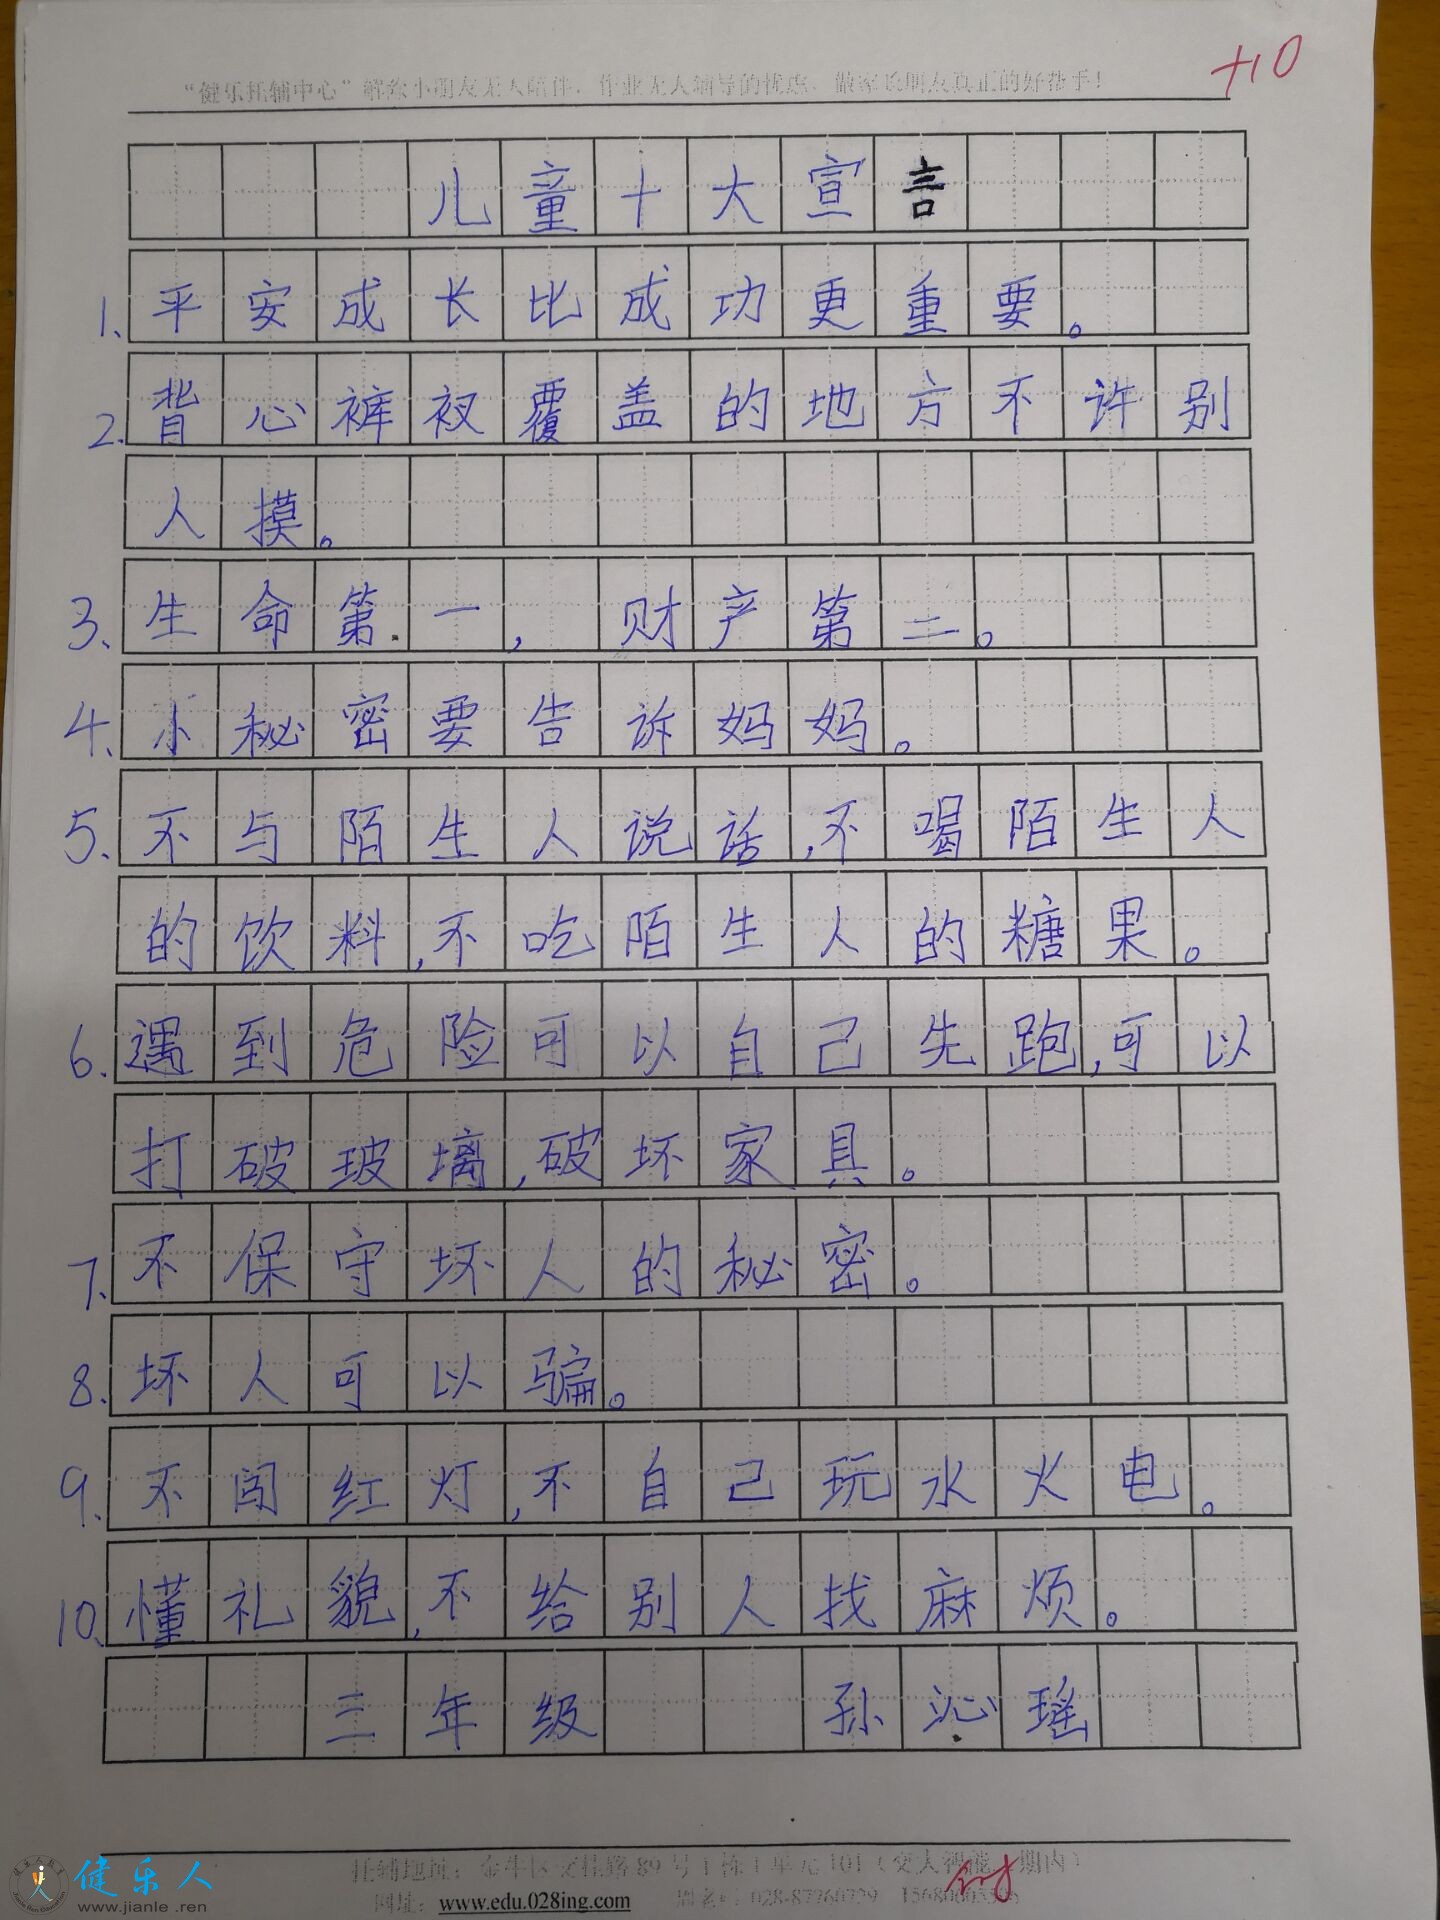 “健乐托辅中心”解您小朋友无人陪伴、作业无人辅导的忧虑，做家长朋友真正的好帮手！
+10
儿童十大宣言
1、平安成长比成功更重要。
2、背心裤衩覆盖的地方不许别
人摸。
3、生命第一，财产第二。
4、小秘密要告诉妈妈。
5、不与陌生人说话，不喝陌生人
的饮料，不吃陌生人的糖果。
6、遇到危险可以自己先跑，可以
打破玻璃，破坏家具。
7、不保守坏人的秘密。
8、坏人可以骗。
9、不闯红灯，不自己玩水火电。
10、懂礼貌，不给别人找麻烦。
三年级 孙沁瑶
托辅地址：金牛区交桂路89号1栋1单元101（交大 期内）
网址：www.edu.028ing.com
健乐人
www.jianle.ren